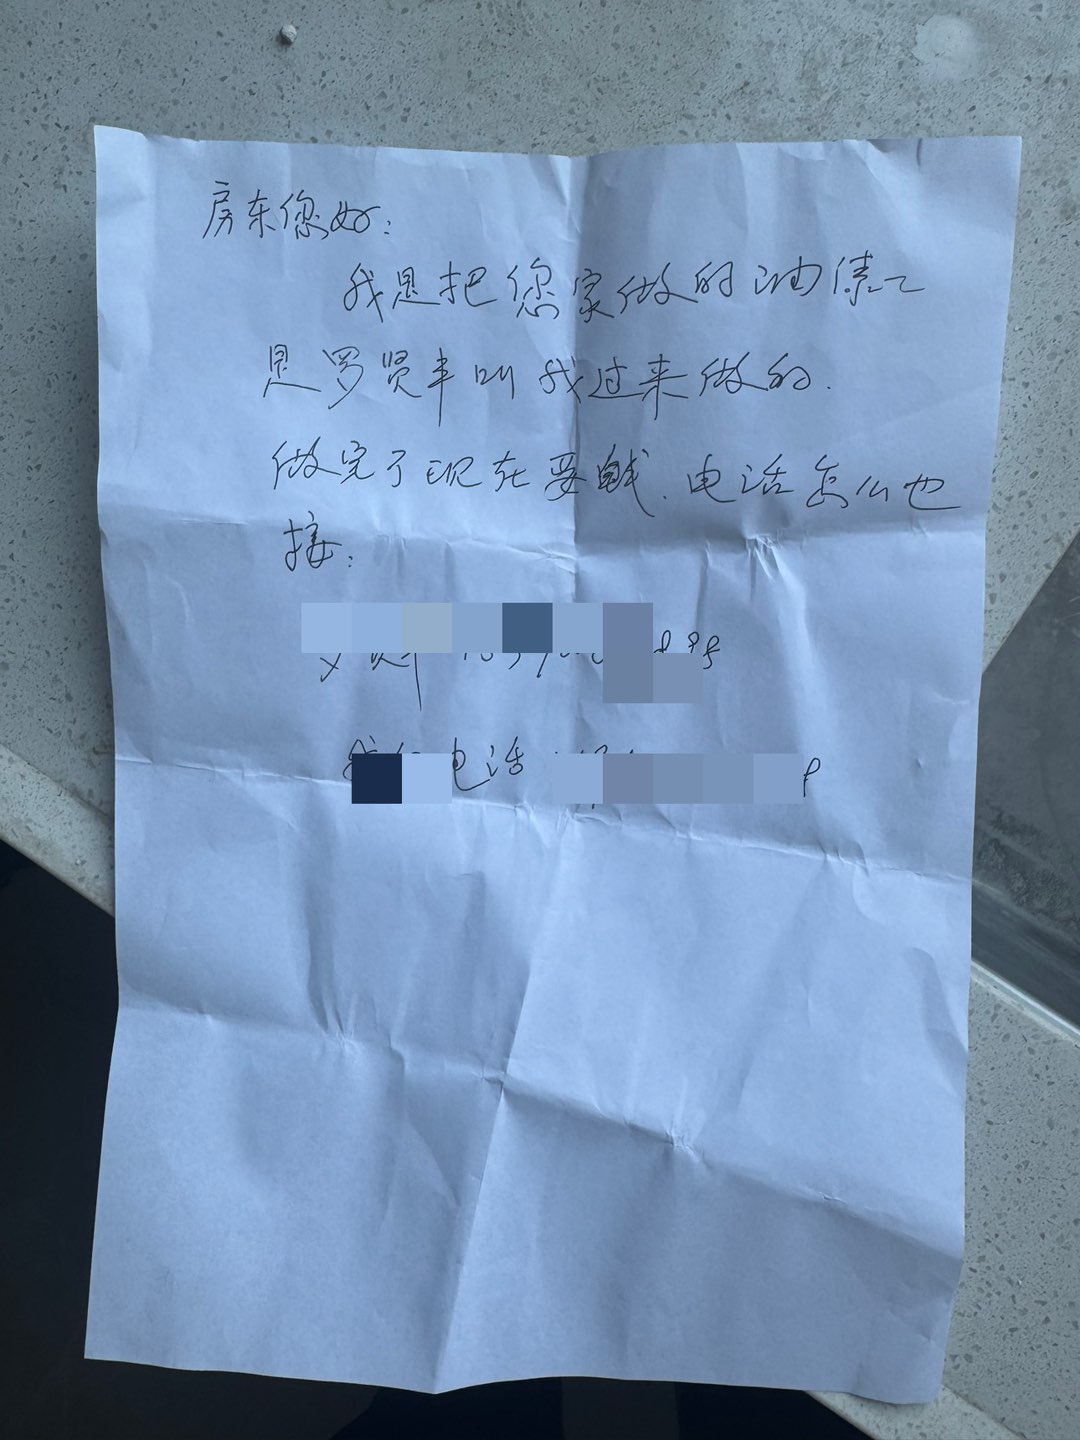 房东您好：
我是把您家做的油漆工
是罗贤丰叫我过来做的.
做完了现在要钱.电话怎么也
接：
电话